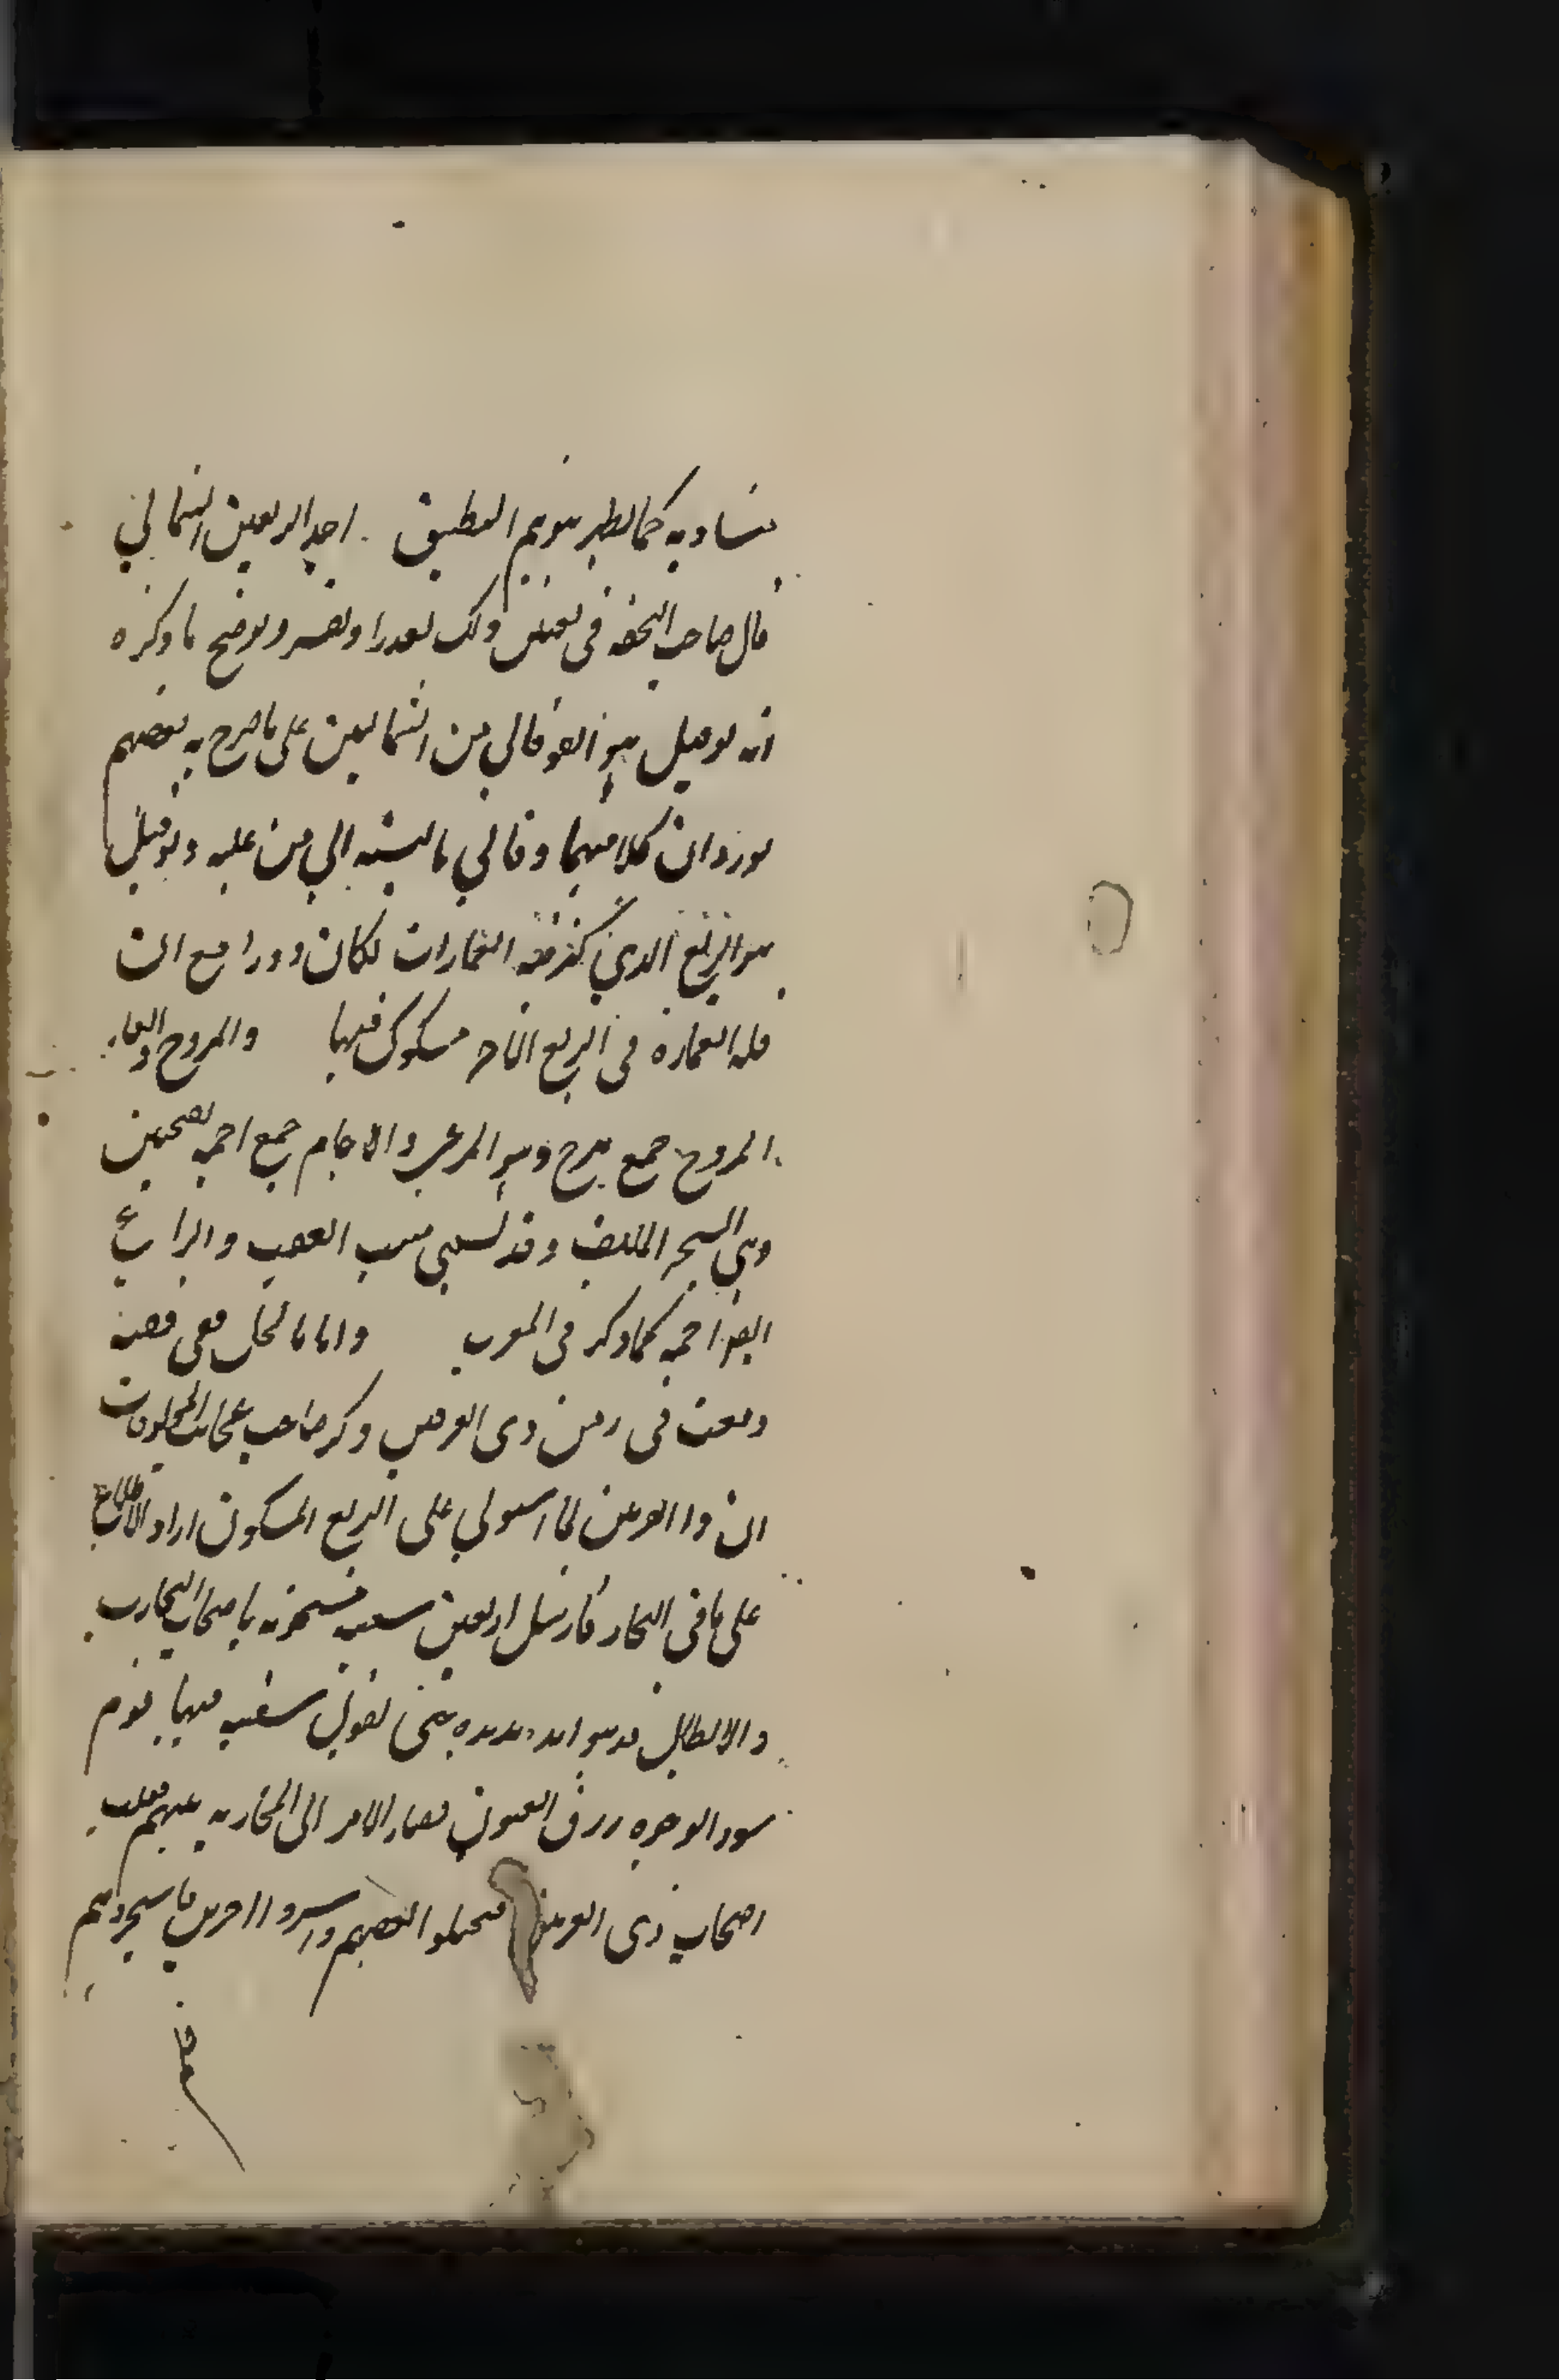 متساويه كما يظهر بتوهم التطبيق احد الربعين الشمالي
قال صاحب التحفه في تعيين ذلك تعذر او تعسر وتوضيح ما ذكره
انه لو قيل هو الفوقاني من الشماليين على ما صرح به بعضهم
لورد ان كلا منهما فوقاني بالنسبه الي من عليه ولو قيل
هو الربع الذي كثر فيه العمارات لكان دورا مع ان
قله العمارة في الربع الاخر مشكوك فيها والمروج والعا
المروج جمع مرج وهو المرعى والاجام جمع اجمه بفتحتين
وهي الشجر الملتف وقد تسمى منبت القصب واليراع
ايضا اجمه كما ذكر في المغرب واما بالنخل فهي قصبه
وبعث في زمن ذي القرنين ذكر صاحب عجائب المخلوقات
ان ذا القرنين لما استولي على الربع المسكون اراد الاطلاع
على ما في البحار فارسل اربعين سفينه مشحونه باصحاب التجارب
والابطال مده مديده حتى لقوا سفينه فيها قوم
سود الوجوه زرق العيون فصار الامر الى المحاربه بينهم فغلب
اصحاب ذي القرنين فقتلوا بعضهم واسروا اخرين فاستخبروهم